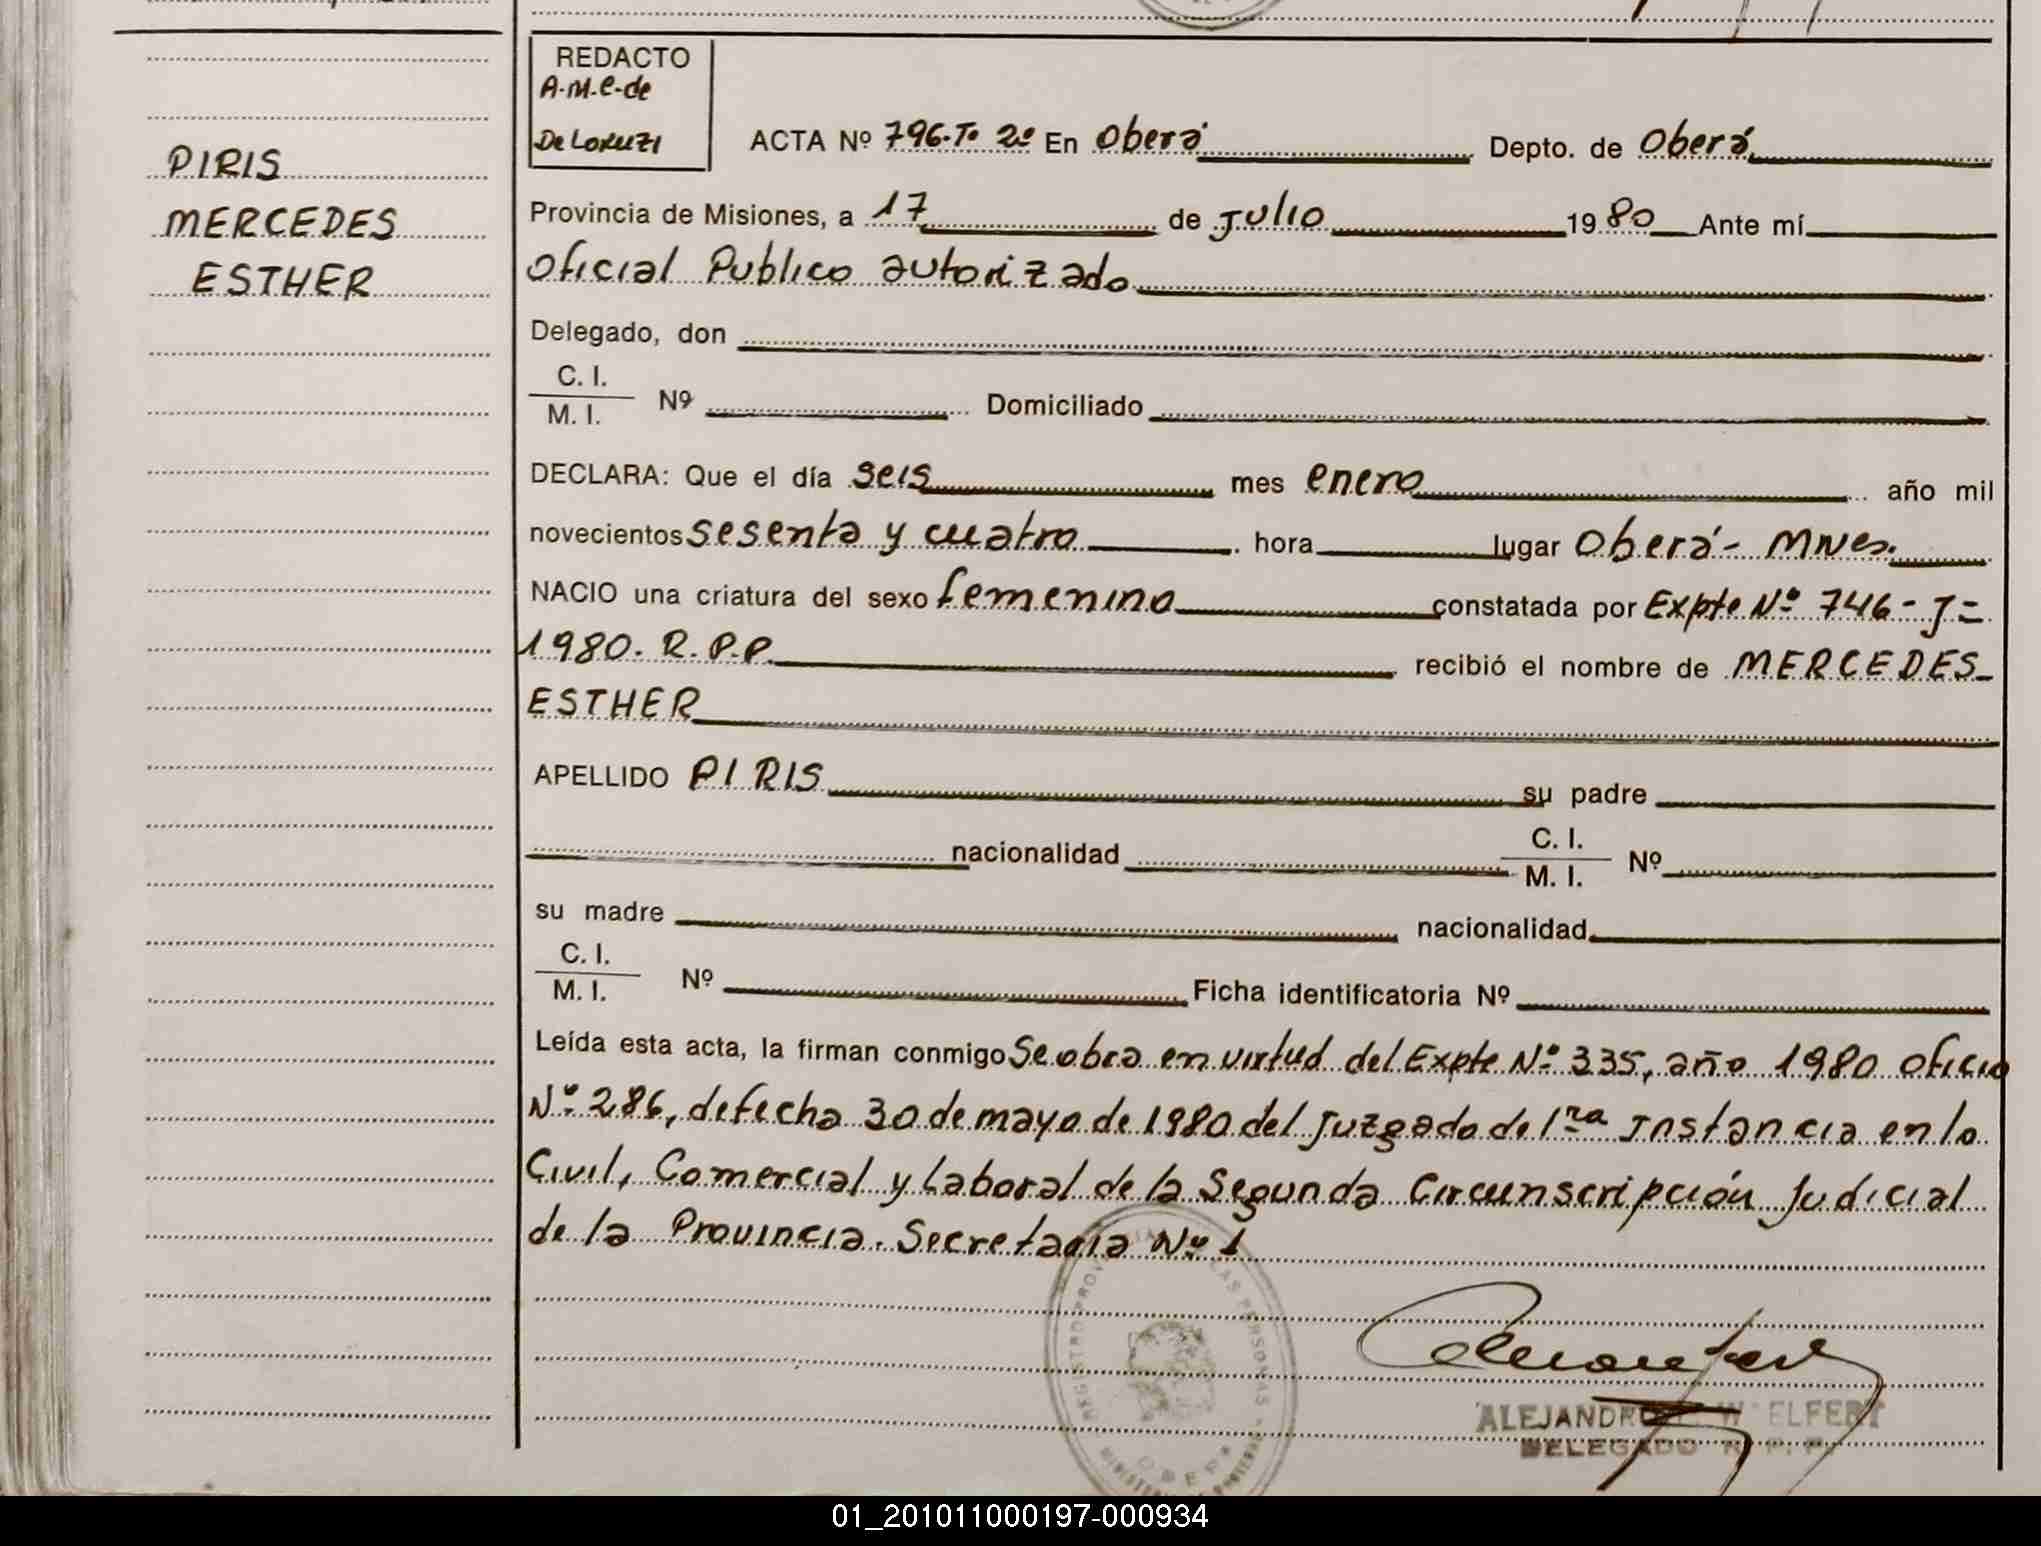 PIRIS
MERCEDES
ESTHER
REDACTO
A.M.C. de
De Loruzi
ACTA Nº 796-Tº 2º En Oberá Depto. de Oberá
Provincia de Misiones, a 17 de Julio 1980 Ante mí
Oficial Publico autorizado
Delegado, don
C. I.
M. I. Nº Domiciliado
DECLARA: Que el día seis mes enero año mil
novecientos sesenta y cuatro hora lugar Oberá - Mnes.
NACIO una criatura del sexo femenino constatada por Expte Nº 746 - J =
1980. R.P.P. recibió el nombre de MERCEDES
ESTHER
APELLIDO PIRIS su padre
nacionalidad C. I.
M. I. Nº
su madre nacionalidad
C. I.
M. I. Nº Ficha identificatoria Nº
Leída esta acta, la firman conmigo Se obra en virtud del Expte Nº 335, año 1980 Oficio
Nº 286, de fecha 30 de mayo de 1980 del Juzgado de 1ra Instancia en lo
Civil, Comercial y Laboral de la Segunda Circunscripción Judicial
de la Provincia. Secretaria Nº 1
REGISTRO PROV LAS PERSONAS
OBERA
ALEJANDRO W. ELFERT
DELEGADO R. P. P.
01_201011000197-000934